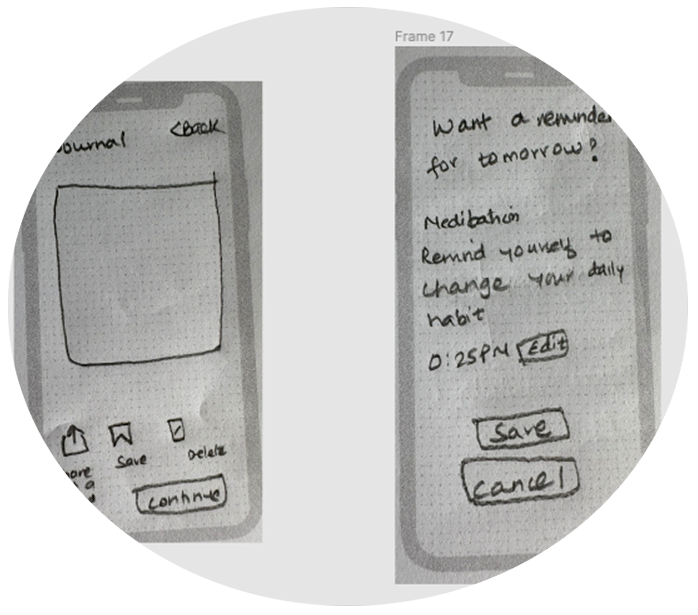 Frame 17
ournal
<Back
Save
Delete
continue
Want a reminde
for tomorrow?
Meditation
Remind yourself to
change your daily
habit
0:25PM Edit
Save
Cancel